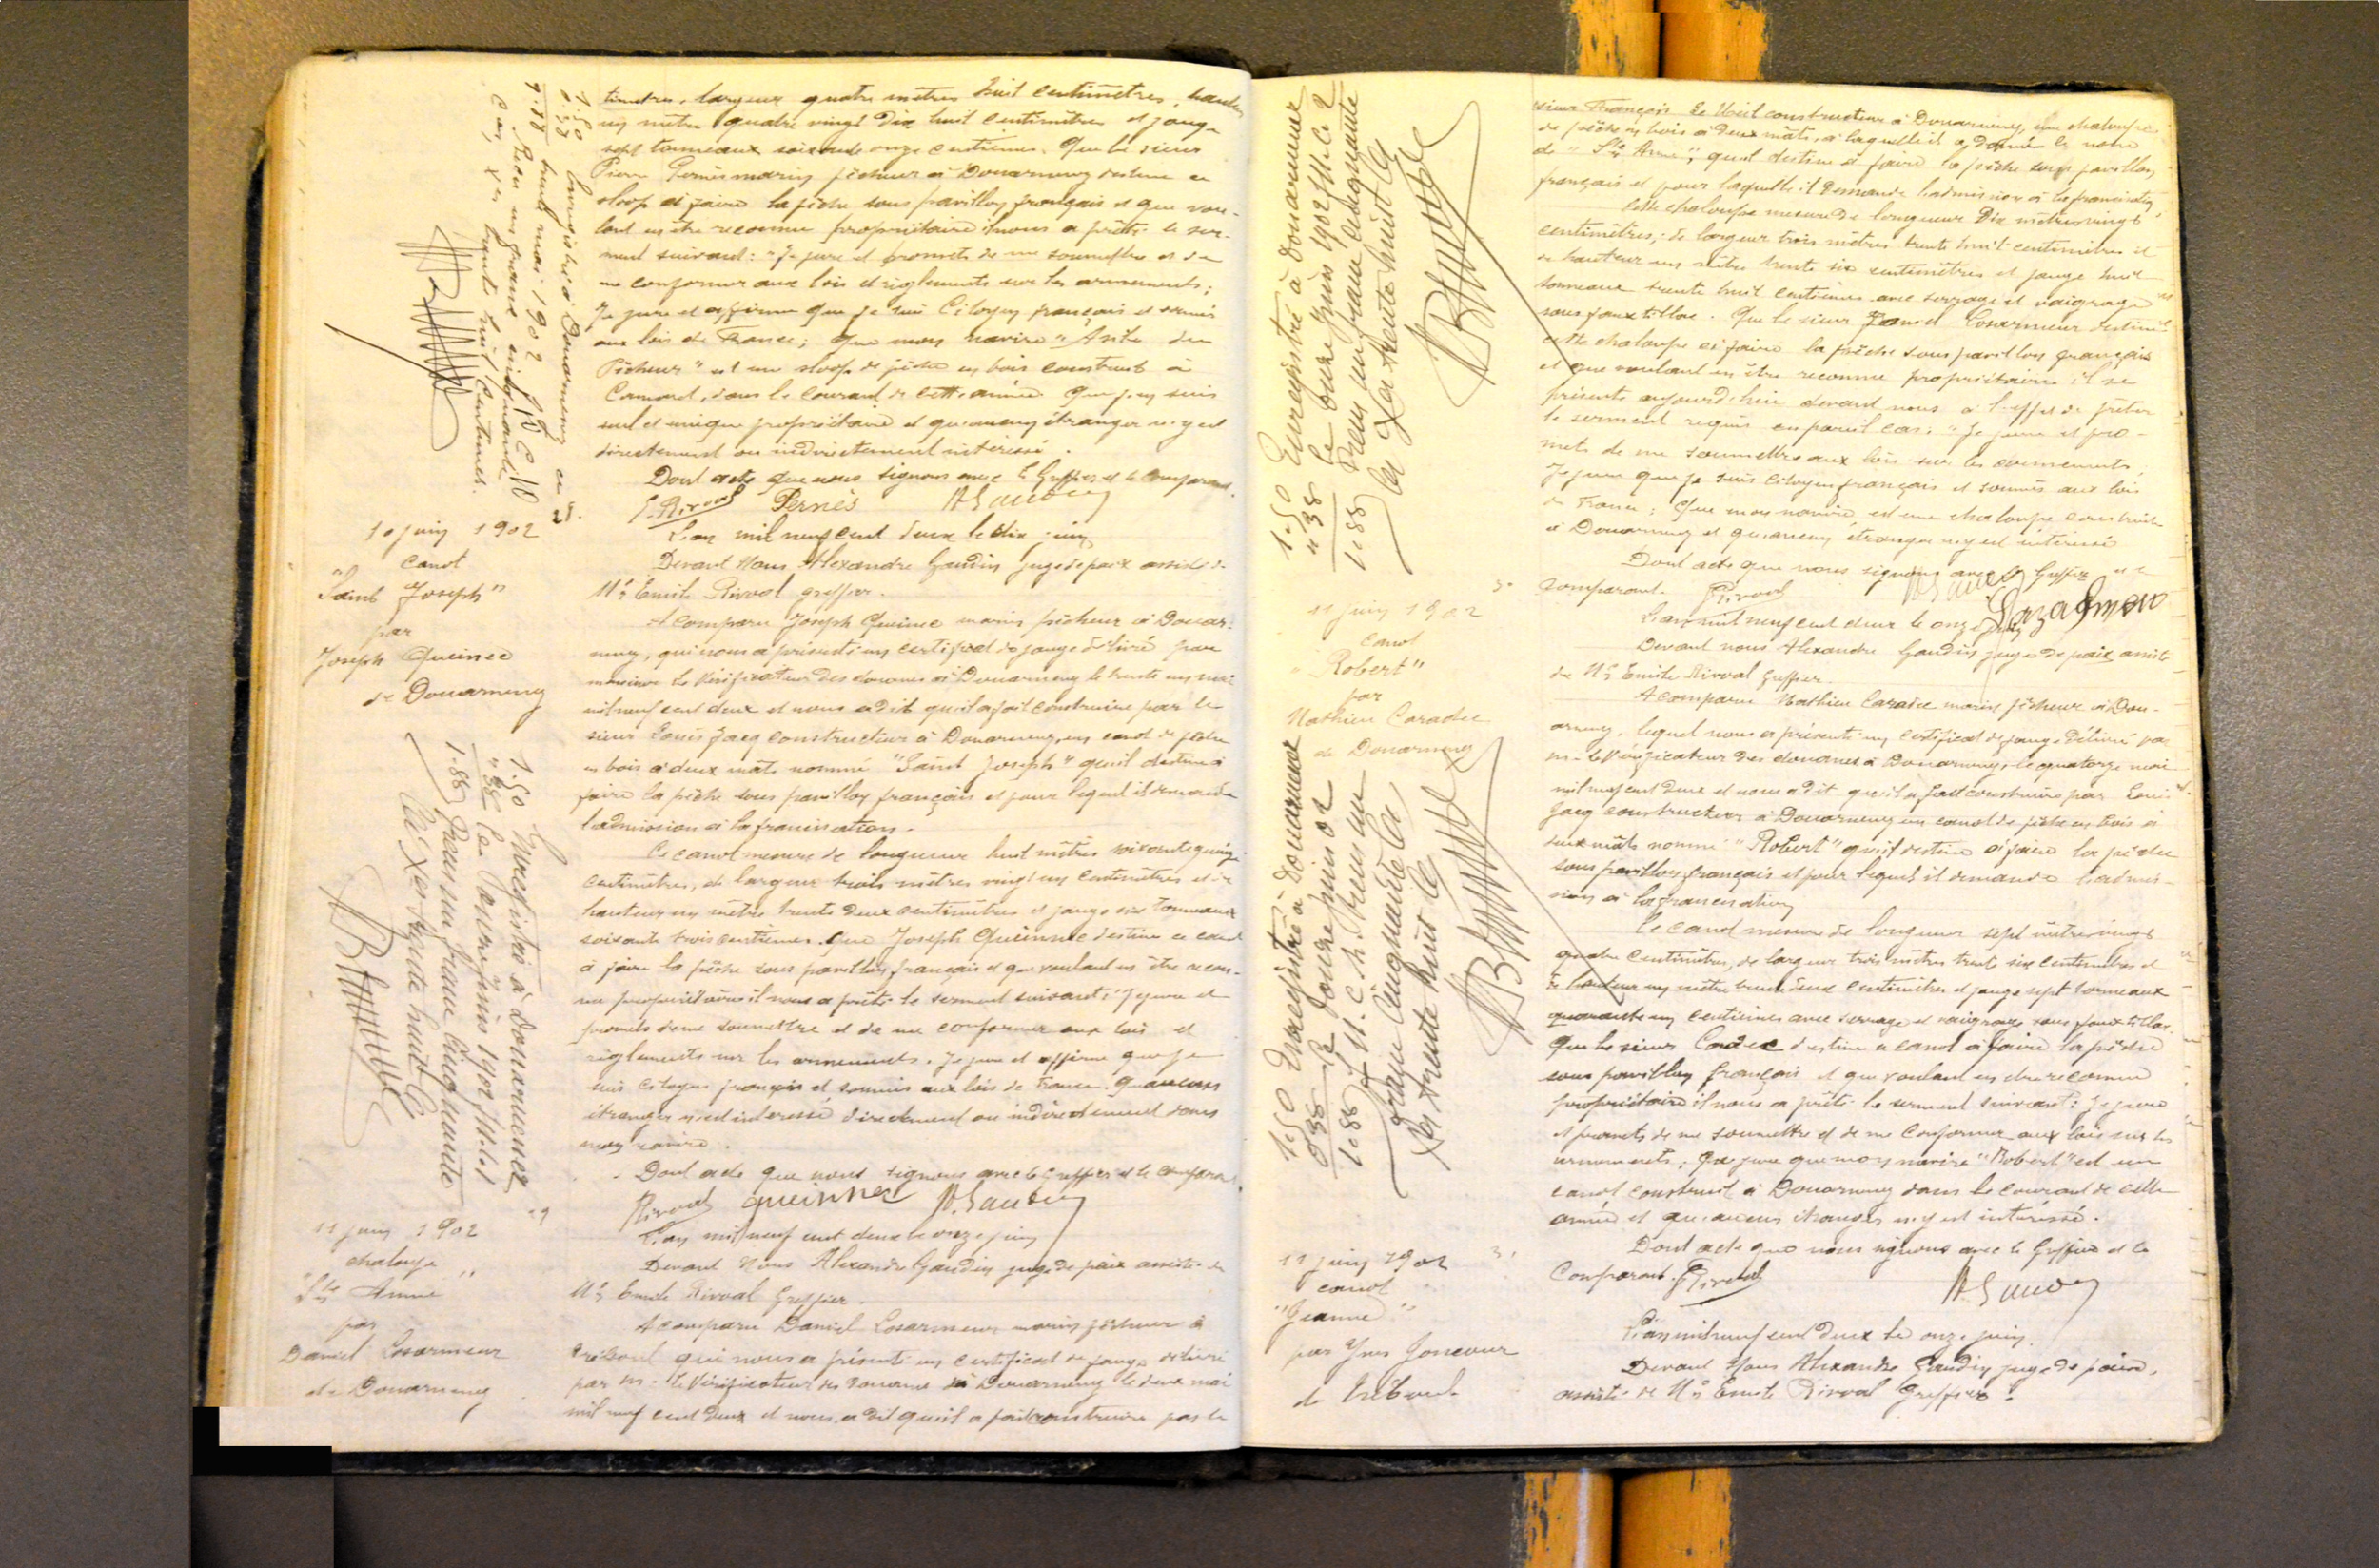 timètres, largeur quatre mètres huit centimètres, hauteur
un mètre quatre vingt dix huit centimètres et jauge
sept tonneaux soixante onze centièmes. Que le sieur
Pierre Pernès marin pêcheur à Douarnenez destine ce
sloop à faire la pêche sous pavillon français et que vou-
lant en être reconnu propriétaire il nous a prêté le ser-
ment suivant: "Je jure et promets de me soumettre et de
me conformer aux lois et règlements sur les armements;
Je jure et affirme que je suis Citoyen français et soumis
aux lois de France; Que mon navire
Pêcheur" est un sloop de pêche en bois construit à
Camaret, dans le courant de cette année. Que j'en suis
seul et unique propriétaire et qu'aucun étranger n'y est
directement ou indirectement intéressé.
Dont acte que nous signons avec le Greffier et le comparant.
E. Rivoal Pernès A Gaudin
1.50 Enregistré à Douarnenez le
0.38 trente mai 1902
1.88 Reçu un franc cinquante
trente huit centimes.
28.
10 juin 1902
canot
"Saint Joseph"
par
Joseph Queinnec
de Douarnenez
L'an mil neuf cent deux le dix juin
Devant Nous Alexandre Gaudin Juge de paix assisté de
Me Emile Rivoal greffier.
A comparu Joseph Queinnec marin pêcheur à Douar-
nenez, qui nous a présenté un certificat de jauge délivré par
monsieur le Vérificateur des douanes à Douarnenez le trente un mai
mil neuf cent deux et nous a dit qu'il a fait construire par le
sieur Louis Jacq constructeur à Douarnenez, un canot de pêche
en bois à deux mâts nommé "Saint Joseph" qu'il destine à
faire la pêche sous pavillon français et pour lequel il demande
l'admission à la francisation.
Ce canot mesure de longueur huit mètres soixante quinze
centimètres, de largeur trois mètres vingt un centimètres et de
hauteur un mètre trente deux centimètres et jauge six tonneaux
soixante trois centièmes. Que Joseph Queinnec destine ce canot
à faire la pêche sous pavillon français et que voulant en être recon-
nu propriétaire il nous a prêté le serment suivant: "Je jure et
promets de me soumettre et de me conformer aux lois et
règlements sur les armements. Je jure et affirme que je
suis citoyen français et soumis aux lois de France. Qu'aucun
étranger n'est intéressé directement ou indirectement dans
mon navire.
Dont acte que nous signons avec le Greffier et le comparant.
Rivoal Queinnec A. Gaudin
1.50 Enregistré à Douarnenez
"38 le onze juin 1902
1.88 Reçu un franc cinquante
trente huit
29
11 juin 1902
chaloupe
"Ste Anne"
par
Daniel Losarmeur
de Douarnenez
L'an mil neuf cent deux le onze juin
Devant Nous Alexandre Gaudin juge de paix assisté de
Me Emile Rivoal Greffier.
A comparu Daniel Losarmeur marin pêcheur à
Tréboul qui nous a présenté un certificat de jauge délivré
par M. le Vérificateur des Douanes de Douarnenez le deux mai
mil neuf cent deux et nous a dit qu'il a fait construire par le
sieur François Le Moil constructeur à Douarnenez, une chaloupe
de pêche en bois à deux mâts, à laquelle il a donné le nom
de "Ste Anne", qu'il destine à faire la pêche sous pavillon
français et pour laquelle il demande l'admission à la francisation.
Cette chaloupe mesure de longueur dix mètres vingt
centimètres, de largeur trois mètres trente huit centimètres et
de hauteur un mètre trente six centimètres et jauge huit
tonneaux trente huit centièmes avec serrage et vaigrage
sous faux tillac. Que le sieur Daniel Losarmeur destine
cette chaloupe à faire la pêche sous pavillon français
et que voulant en être reconnu propriétaire il se
présente aujourd'hui devant nous à l'effet de prêter
le serment requis en pareil cas: "Je jure et pro-
mets de me soumettre aux lois sur les armements.
Je jure que je suis citoyen français et soumis aux lois
de France; Que mon navire est une chaloupe construite
à Douarnenez et qu'aucun étranger n'y est intéressé
Dont acte que nous signons avec le Greffier et le
comparant. Rivoal A Gaudin
1.50 Enregistré à Douarnenez
"38 le onze juin 1902
1.88 Reçu un franc cinquante
trente huit
30
11 juin 1902
canot
"Robert"
par
Mathieu Caradec
de Douarnenez
L'an mil neuf cent deux le onze juin
Devant nous Alexandre Gaudin juge de paix assisté
de Me Emile Rivoal Greffier.
A comparu Mathieu Caradec marin pêcheur à Dou-
arnenez, lequel nous a présenté un certificat de jauge délivré par
M. le Vérificateur des douanes à Douarnenez, le quatorze mai
mil neuf cent deux et nous a dit qu'il a fait construire par Louis
Jacq constructeur à Douarnenez un canot de pêche en bois à
deux mâts nommé "Robert" qu'il destine à faire la pêche
sous pavillon français et pour lequel il demande l'admis-
sion à la francisation
Ce canot mesure de longueur sept mètres vingt
quatre centimètres, de largeur trois mètres trente six centimètres et
de hauteur un mètre trente deux centimètres et jauge sept tonneaux
quarante un centièmes avec serrage et vaigrage sous faux tillac.
Que le sieur Caradec destine ce canot à faire la pêche
sous pavillon français et que voulant en être reconnu
propriétaire il nous a prêté le serment suivant: Je jure
et promets de me soumettre et de me conformer aux lois sur les
armements; Je jure que mon navire "Robert" est un
canot construit à Douarnenez dans le courant de cette
année et qu'aucun étranger n'y est intéressé.
Dont acte que nous signons avec le Greffier et le
Comparant. Rivoal A. Gaudin
1.50 Enregistré à Douarnenez
0.38 le onze juin 02
1.88 Reçu un
franc cinquante
trente huit
31
11 juin 1902
canot
"Jeanne"
par Yves Joncour
de Tréboul
L'an mil neuf cent deux le onze juin.
Devant Nous Alexandre Gaudin juge de paix,
assisté de Me Emile Rivoal Greffier.